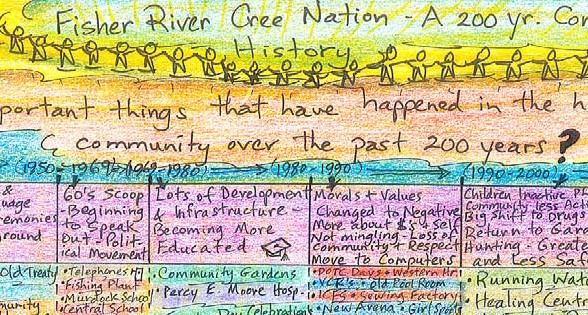 Fisher River Cree Nation - A 200 yr. Co
History
portant things that have happened in the h
& community over the past 200 years?
(1950-1969) (1980) (1980-1990) (1990-2000)
& 60's Scoop Lots of Development Morals + Values Children Inactive
uage -Beginning & Infrastructure Changed to Negative Community less Act
emonies to Speak Becoming More More about $ & self Big Shift to Drug
round Out - Polit- Educated Not mingling - Loss of Return to Gar
ical Movement Community + Respect Hunting - Greate
Move to Computers and Less Saf
Old Treaty • Telephones • Community Gardens Days • Western • Running Wat
• Fishing Plant • Percy E. Moore Hosp. • Old Pool Room • Healing Cent
munity • Murdock School • Sewing Factory
• Central School Celebration • New Arena • Girl